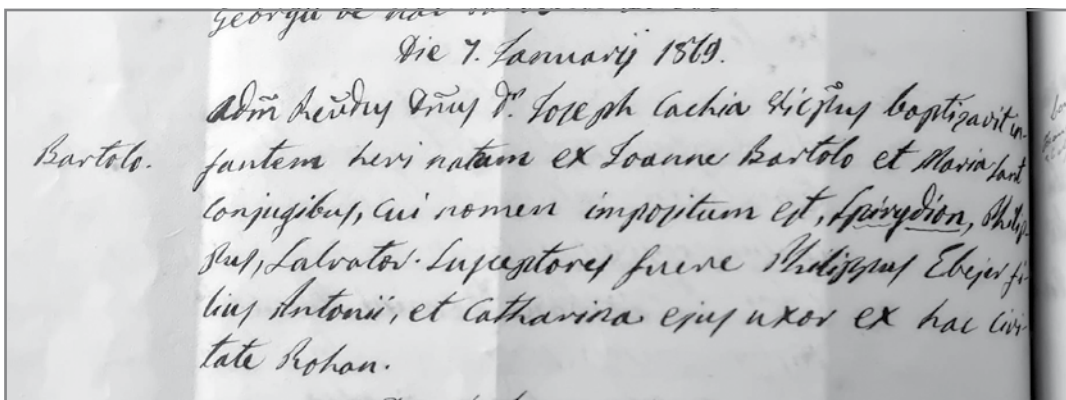 Georgii de hac
Die 7. Januarij 1869.
Adm̃ Reũdus Dñus Dʳ. Joseph Cachia Viceʳᵖ̃us baptizavit in-
Bartolo. fantem heri natam ex Joanne Bartolo et Maria Sant
conjugibus, cui nomen impositum est, Spirydion, Philip-
pus, Salvator. Susceptores fuere Philippus Ebejer fi-
lius Antonii, et Catharina ejus uxor ex hac Civi-
tate Rohan.